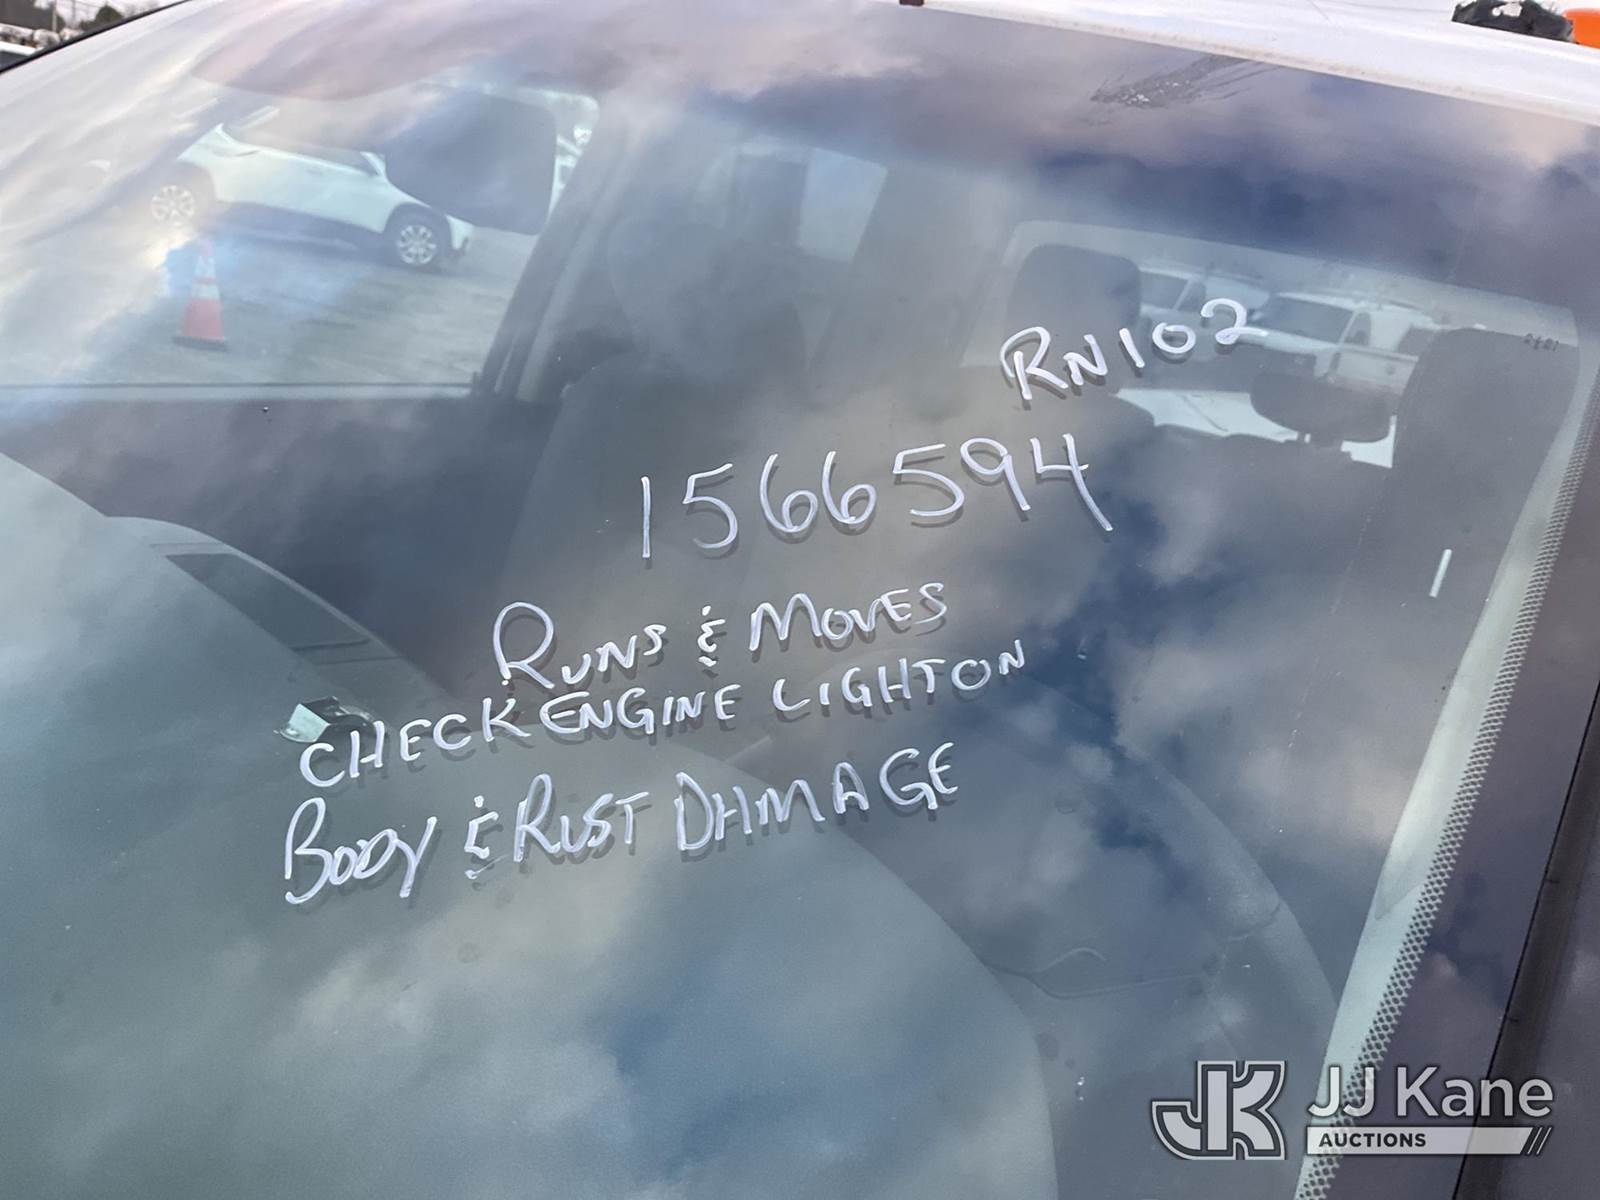 RN102
1566594
RUNS & MOVES
CHECK ENGINE LIGHT ON
BODY & RUST DAMAGE
JK JJ Kane
AUCTIONS